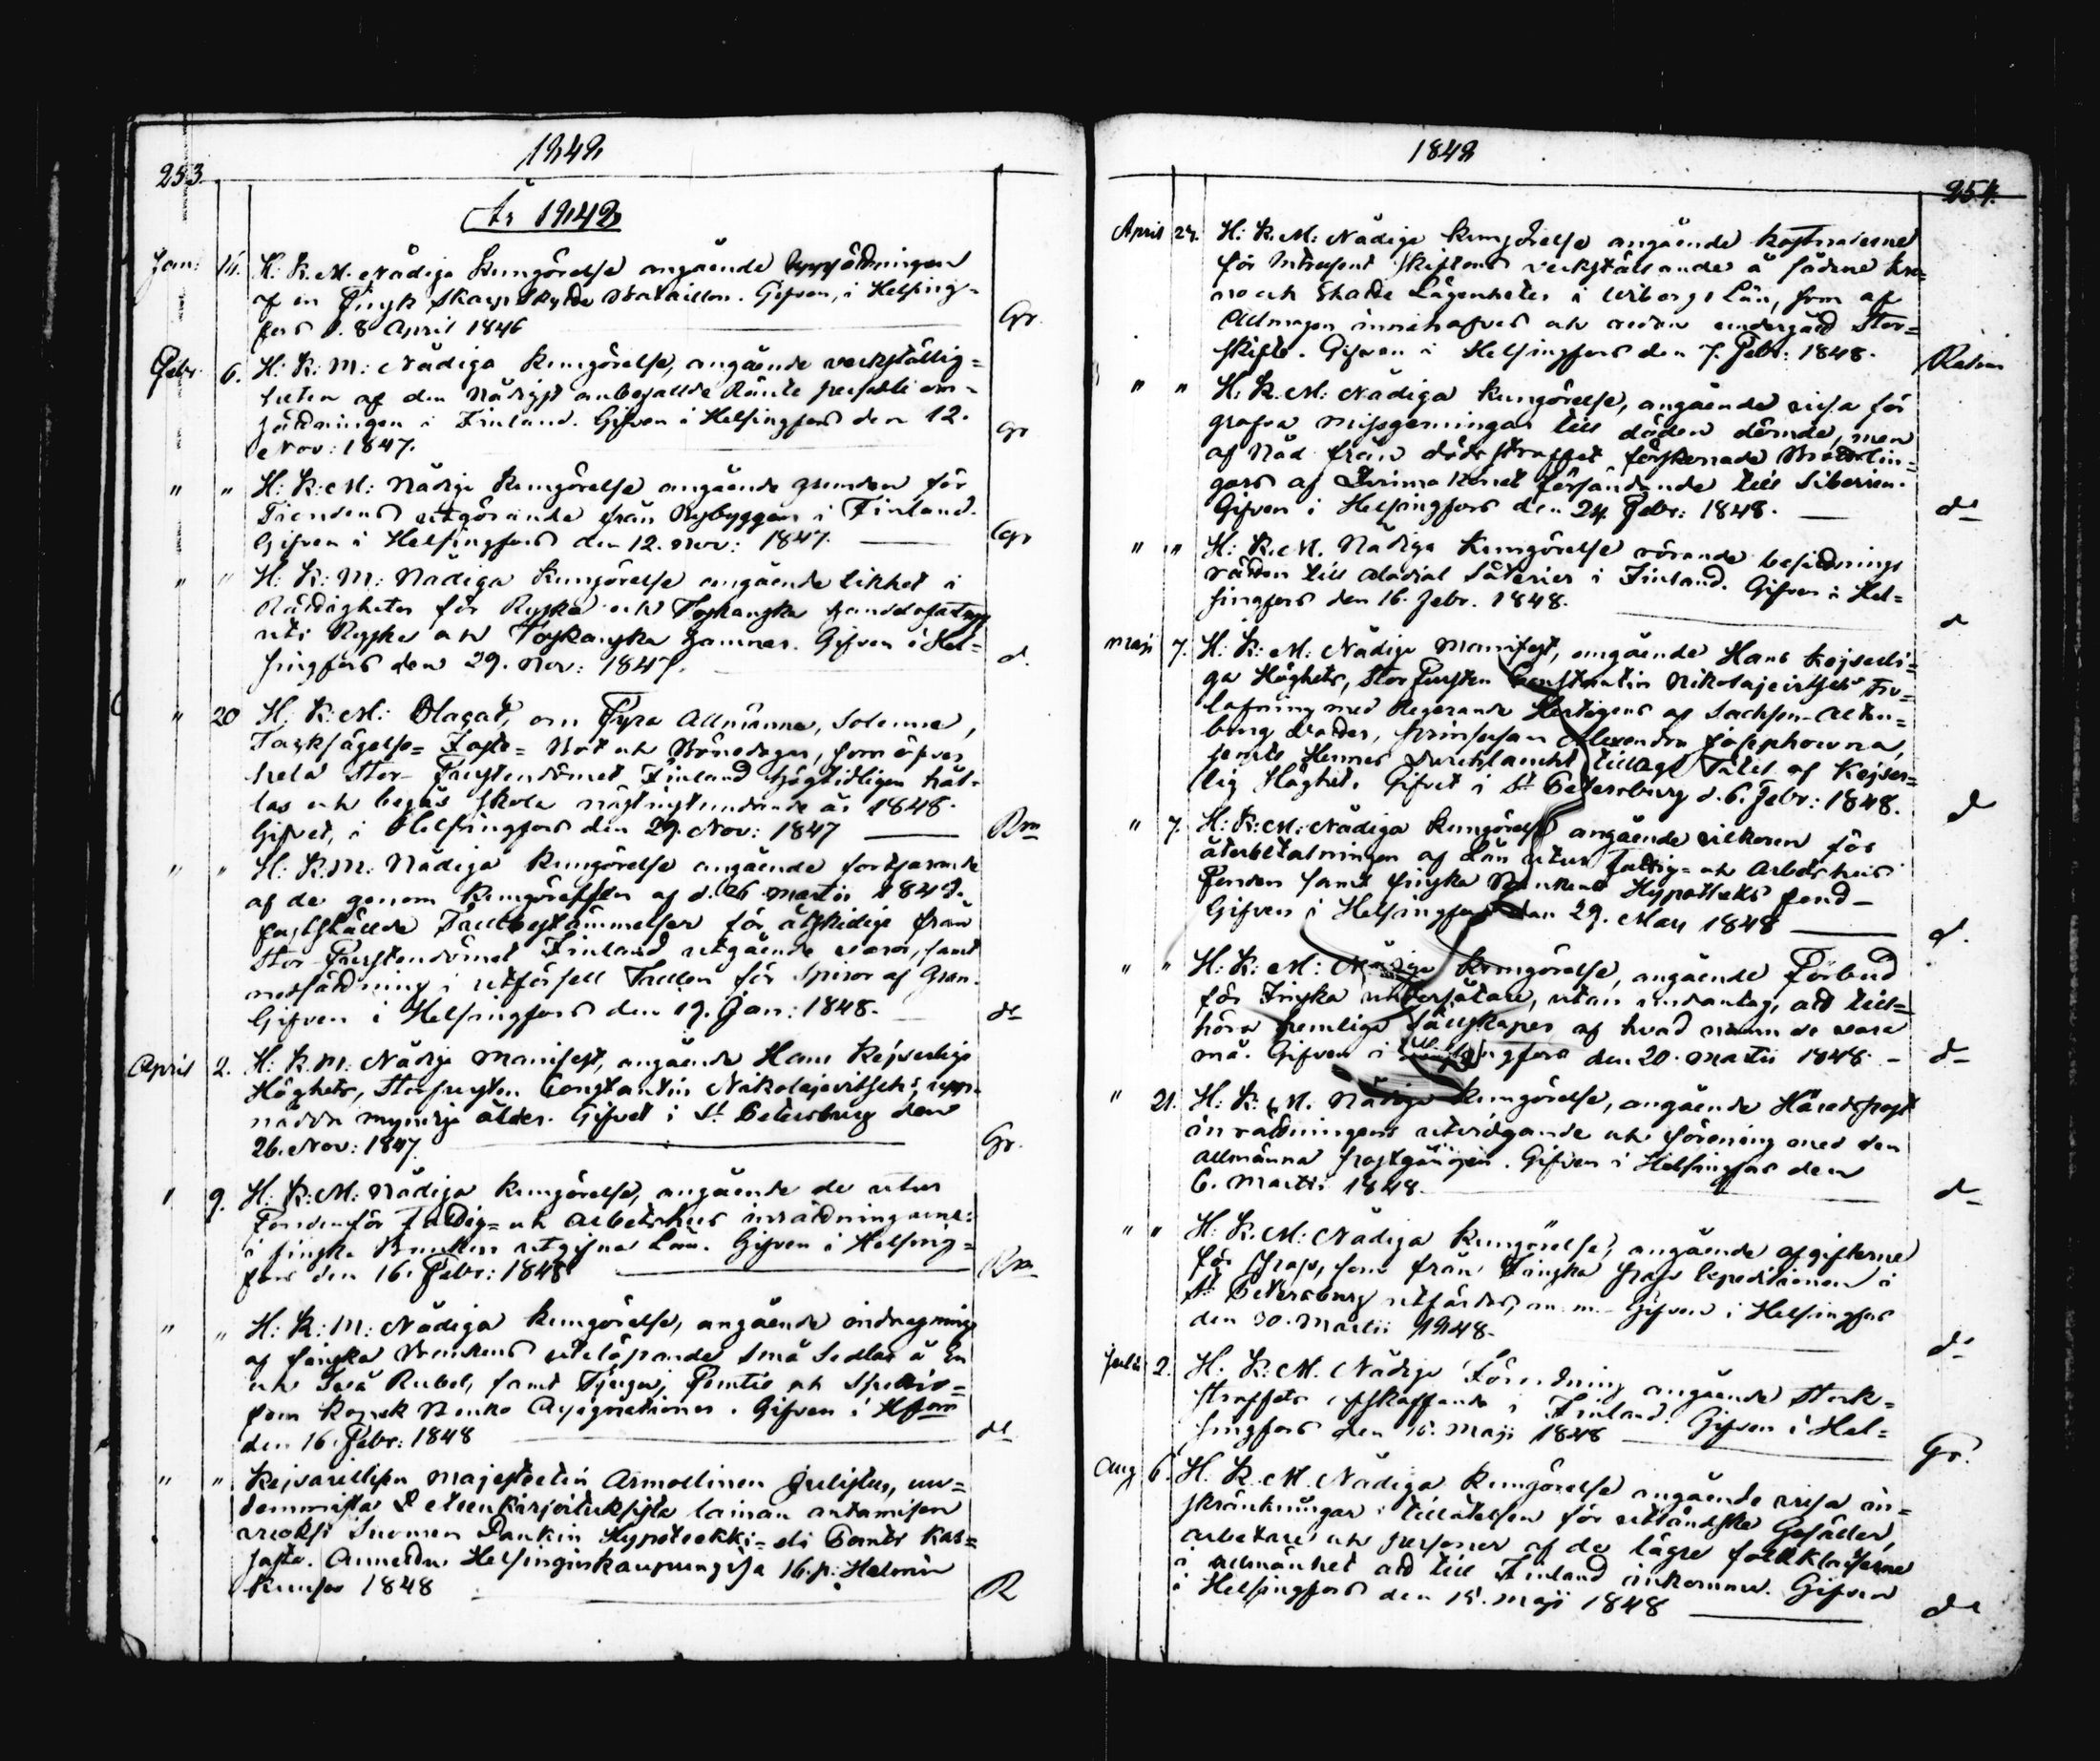 1848
253.
År 1848
Jan: 16. H: K. M. Nådiga Kungörelse angående uppsättningen
af en Finsk Skarpskytte Bataillon. Gifven, i Helsing-
fors d. 8 April 1846 Gr.
Febr. 6. H: K: M: Nådiga Kungörelse, angående verkställig=
heten af den Nådigst anbefallde Ränte persedle om=
sättningen i Finland. Gifven i Helsingfors den 12.
Nov: 1847. Gr
" " H: K: M: Nådige Kungörelse angående grunden för
Tiendens utgörande från Nybyggen i Finland.
Gifven i Helsingfors den 12. Nov: 1847. Gr
" " H: K: M: Nådiga Kungörelse angående likhet i
Rättigheter för Ryska och Toskanska handelsfartyg
uti Ryska och Toskanska hamnar. Gifven i Hel=
singfors den 29. Nov: 1847. d.
" 20 H: K: M: Plagat, om Fyra Allmänna, Solenne,
Tacksägelse= Faste= Bot och Bönedagar, som öfver
hela Stor-Furstendömet Finland högtidligen hål-
las och begås skola nästinstundande år 1848.
Gifvet, i Helsingfors den 29. Nov: 1847 Rm
" " H: K. M: Nådiga Kungörelse angående fortfarande
af de genom Kungörelsen af d. 26 Martii 1842.
fastställde Tullbestämmelser för åtskilliga från
Stor-Furstendömet Finland utgående varor, samt
nedsättning i utförsell Tullen för Spiror af Gran.
Gifven i Helsingfors den 19. Jan: 1848. do
April 2. H: K. M: Nådige Manifest, angående Hans Kejserliga
Höghets, Storfursten Constantin Nikolajevitschs, upp-
nådda myndige ålder. Gifvet i St Petersburg den
26. Nov: 1847. Gr.
" 9. H: K: M: Nådiga Kungörelse, angående de utur
Fonden för Fattig= och Arbetshus inrättningarne
i finska Banken utgifna Lån. Gifven i Helsing=
fors den 16. Febr: 1848 Rm
" " H: K: M: Nådiga Kungörelse, angående indragning
af finska Bankens utelöpande Små Sedlar å En
och Två Rubel, samt Tjugu, Femtio och Sjuttio=
fem Kopek Banko Assignationer. Gifven i Hfors
den 16. Febr: 1848 do
" " Keisarillisen Majesteetin Armollinen Julistus, uu=
demmista Lainan antamisen
vuoksi Suomen Pankin Hypoteekki= eli Pantti Kas=
sasta. Annettu Helsingin kaupungisa 16. p: Helmi
kuusa 1848 R
1848
254.
April 24. H: K. M: Nådiga Kungörelse angående kostnaderne
för Intressent skiftens verkställande å sådane kro=
no och Skatte Lägenheter i Wiborgs Län, som af
Allmogen innehafvas och redan undergått Stor=
skifte. Gifven i Helsingfors den 7. Febr: 1848.
" " H: K. M: Nådiga Kungörelse, angående vissa för
grofva missgerningar till döden dömde, men
af Nåd från dödsstraffet förskonade Brottslin=
gars af Qvinno könet försändande till Siberien.
Gifven i Helsingfors den 24. Febr: 1848. do
" " H: K. M. Nådiga Kungörelse rörande besittnings
rätten till Allodial Säterier i Finland. Gifven i Hel=
singfors den 16. Febr. 1848. d
Maji 7. H: K: M: Nådige Manifest, angående Hans Kejserli=
ga Höghets, Stor Fursten Constantin Nikolajevitschs Tro=
lofning med Regerande Hertigens af Sachsen-Alten=
burg Dotter, Prinsessan Alexandra Josephowna,
jemte Hennes Durchlaucht tillagt Titel af Kejser=
lig Höghet. Gifvet i St Petersburg d. 6. Febr: 1848. d
" 7. H: K: M: Nådiga Kungörelse angående vilkoren för
återbetalningen af Lån utur Fattig- och Arbetshus
Fonden samt finska Bankens Hypotheks fond -
Gifven i Helsingfors den 29. Mars 1848 d.
" " H: K: M: Nådige Kungörelse, angående Förbud
för Finska undersåtare, utan undantag, att till=
höra hemliga Sällskaper af hvad namn de vara
må. Gifven i Helsingfors den 20. Martii 1848. d
" 21. H: K: M. Nådige Kungörelse, angående Häradspost
inrättningens utvidgande och förening med den
allmänna postgången. Gifven i Helsingfors den
6. Martii 1848. d
" " H: K. M: Nådiga Kungörelse, angående afgifterne
för Pass, som från Finska Pass Expeditionen i
St Petersburg utfärdas, m. m. Gifven i Helsingfors
den 30. Martii 1848. do
Julii 2. H: K. M. Nådige Förordning angående Stock=
straffets afskaffande i Finland. Gifven i Hel=
singfors den 15. Maji 1848 Gr.
Aug 6. H: K. M. Nådiga Kungörelse angående vissa in=
skränkningar i tillåtelsen för utländske Gesäller,
arbetare och personer af de lägre folkklasserne
i allmänhet att till Finland inkomma. Gifven
i Helsingfors den 15. Maji 1848 do